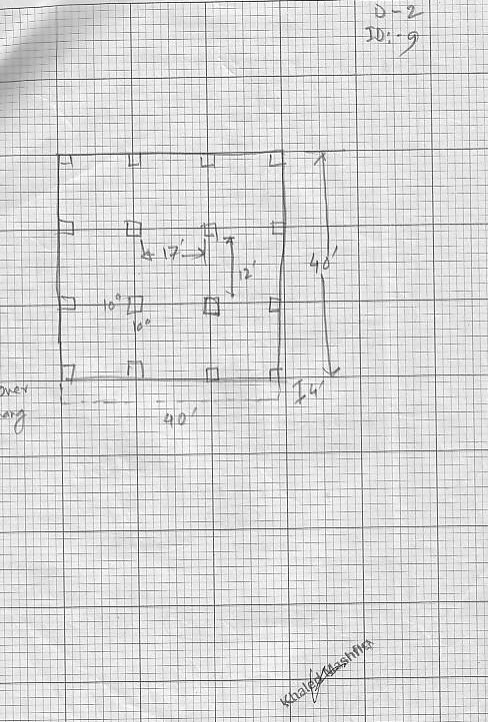 D-2
ID:-9
17'
12'
40'
10"
10"
over
hang
4'
40'
Khaled Mashfiq